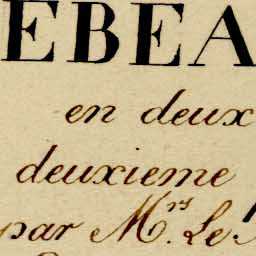 EBEA
en deux
deuxieme
par Mrs. Le